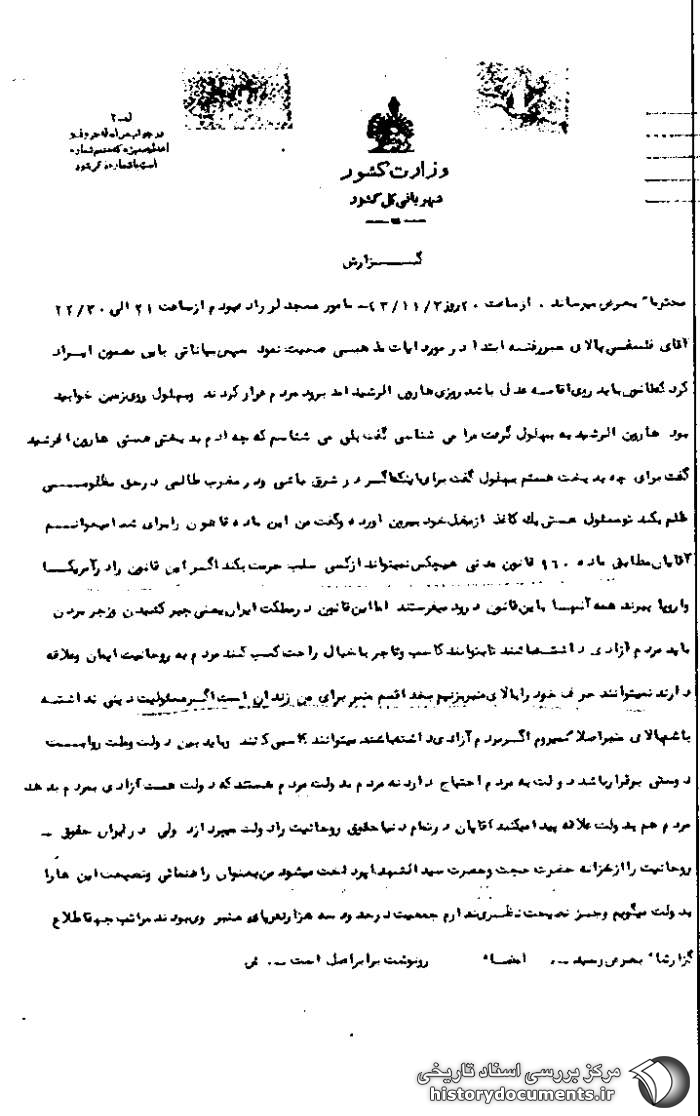 در جواب مراسله حروف و
اعداد ممیزه که ضمیمه شماره
است با شماره ذکر شود
وزارت کشور
شهربانی کل کشور
گـــزارش
محترماً بعرض میرساند. از ساعت ۲۰ روز ۴۳/۱۱/۲ـ مامور مسجد لرزاده بودم از ساعت ۲۱ الی ۲۲/۳۰
آقای فلسفی بالای منبر رفته ابتدا در مورد ایات مذهبی صحبت نمود سپس بیاناتی باین مضمون ایـراد
کرد که قانون باید روی اقامه عدل باشد روزی هارون الرشید امد برود مردم فرار کردند وبهلول روی زمین خوابید
بود هارون الرشید به بهلول گفت مرا می شناسی گفت بلی می شناسم که چه ادم بدبختی هستی هارون الرشید
گفت برای چه بدبخت هستم بهلول گفت برای اینکه اگر در شرق باشی ودر مغرب ظالمی در حق مظلومــی
ظلم بکند تو مسئول هستی یک کاغذ از بغل خود بیرون اورد و گفت من این ماده قانون را برای شما میخوانــم
آقایان مطابق ماده ۹۶۰ قانون مدنی هیچکس نمیتواند از کسی سلب حریت بکند اگر این قانون را در آمریکــا
واروپا ببرند همه آنهــا باین قانون درود میفرستند اما این قانون در مملکت ایران یعنی جبر کشیدن وزجر مردن
باید مردم آزادی داشته باشند تا بتوانند کاسب وتاجر با خیال راحت کسب کنند مردم به روحانیت ایمان وعلاقه
دارند نمیتوانند حرف خود را بالای منبر بزنیم بخدا قسم منبر برای من زندان است اگر مسئولیت دینی نداشتــه
باشم بالای منبر اصلا نمیروم اگر مردم آزادی داشته باشند میتوانند کاسبی کنند وباید بین دولت وملت روابــط
دوستی برقرار باشد دولت به مردم احتیاج دارد نه مردم بدولت مردم هستند که دولت هست آزادی بمردم بدهد
مردم هم بدولت علاقه پیدا میکنند آقایان در تمام دنیا حقوق روحانیت را دولت میپردازد ولی در ایران حقوق ـ
روحانیت را از خزانه حضرت حجت وحضرت سید الشهدا پرداخت میشود من بعنوان راهنمائی ونصیحت این ها را
بدولت میگویم وجز نصیحت نظری ندارم جمعیت در حدود سه هزار نفر پای منبر وی بودند مراتب جهت اطلاع
گزارشاً بعرض رسید ـ. امضــاء رونوشت برابر اصل است ـ.
مرکز بررسی اسناد تاریخی
historydocuments.ir